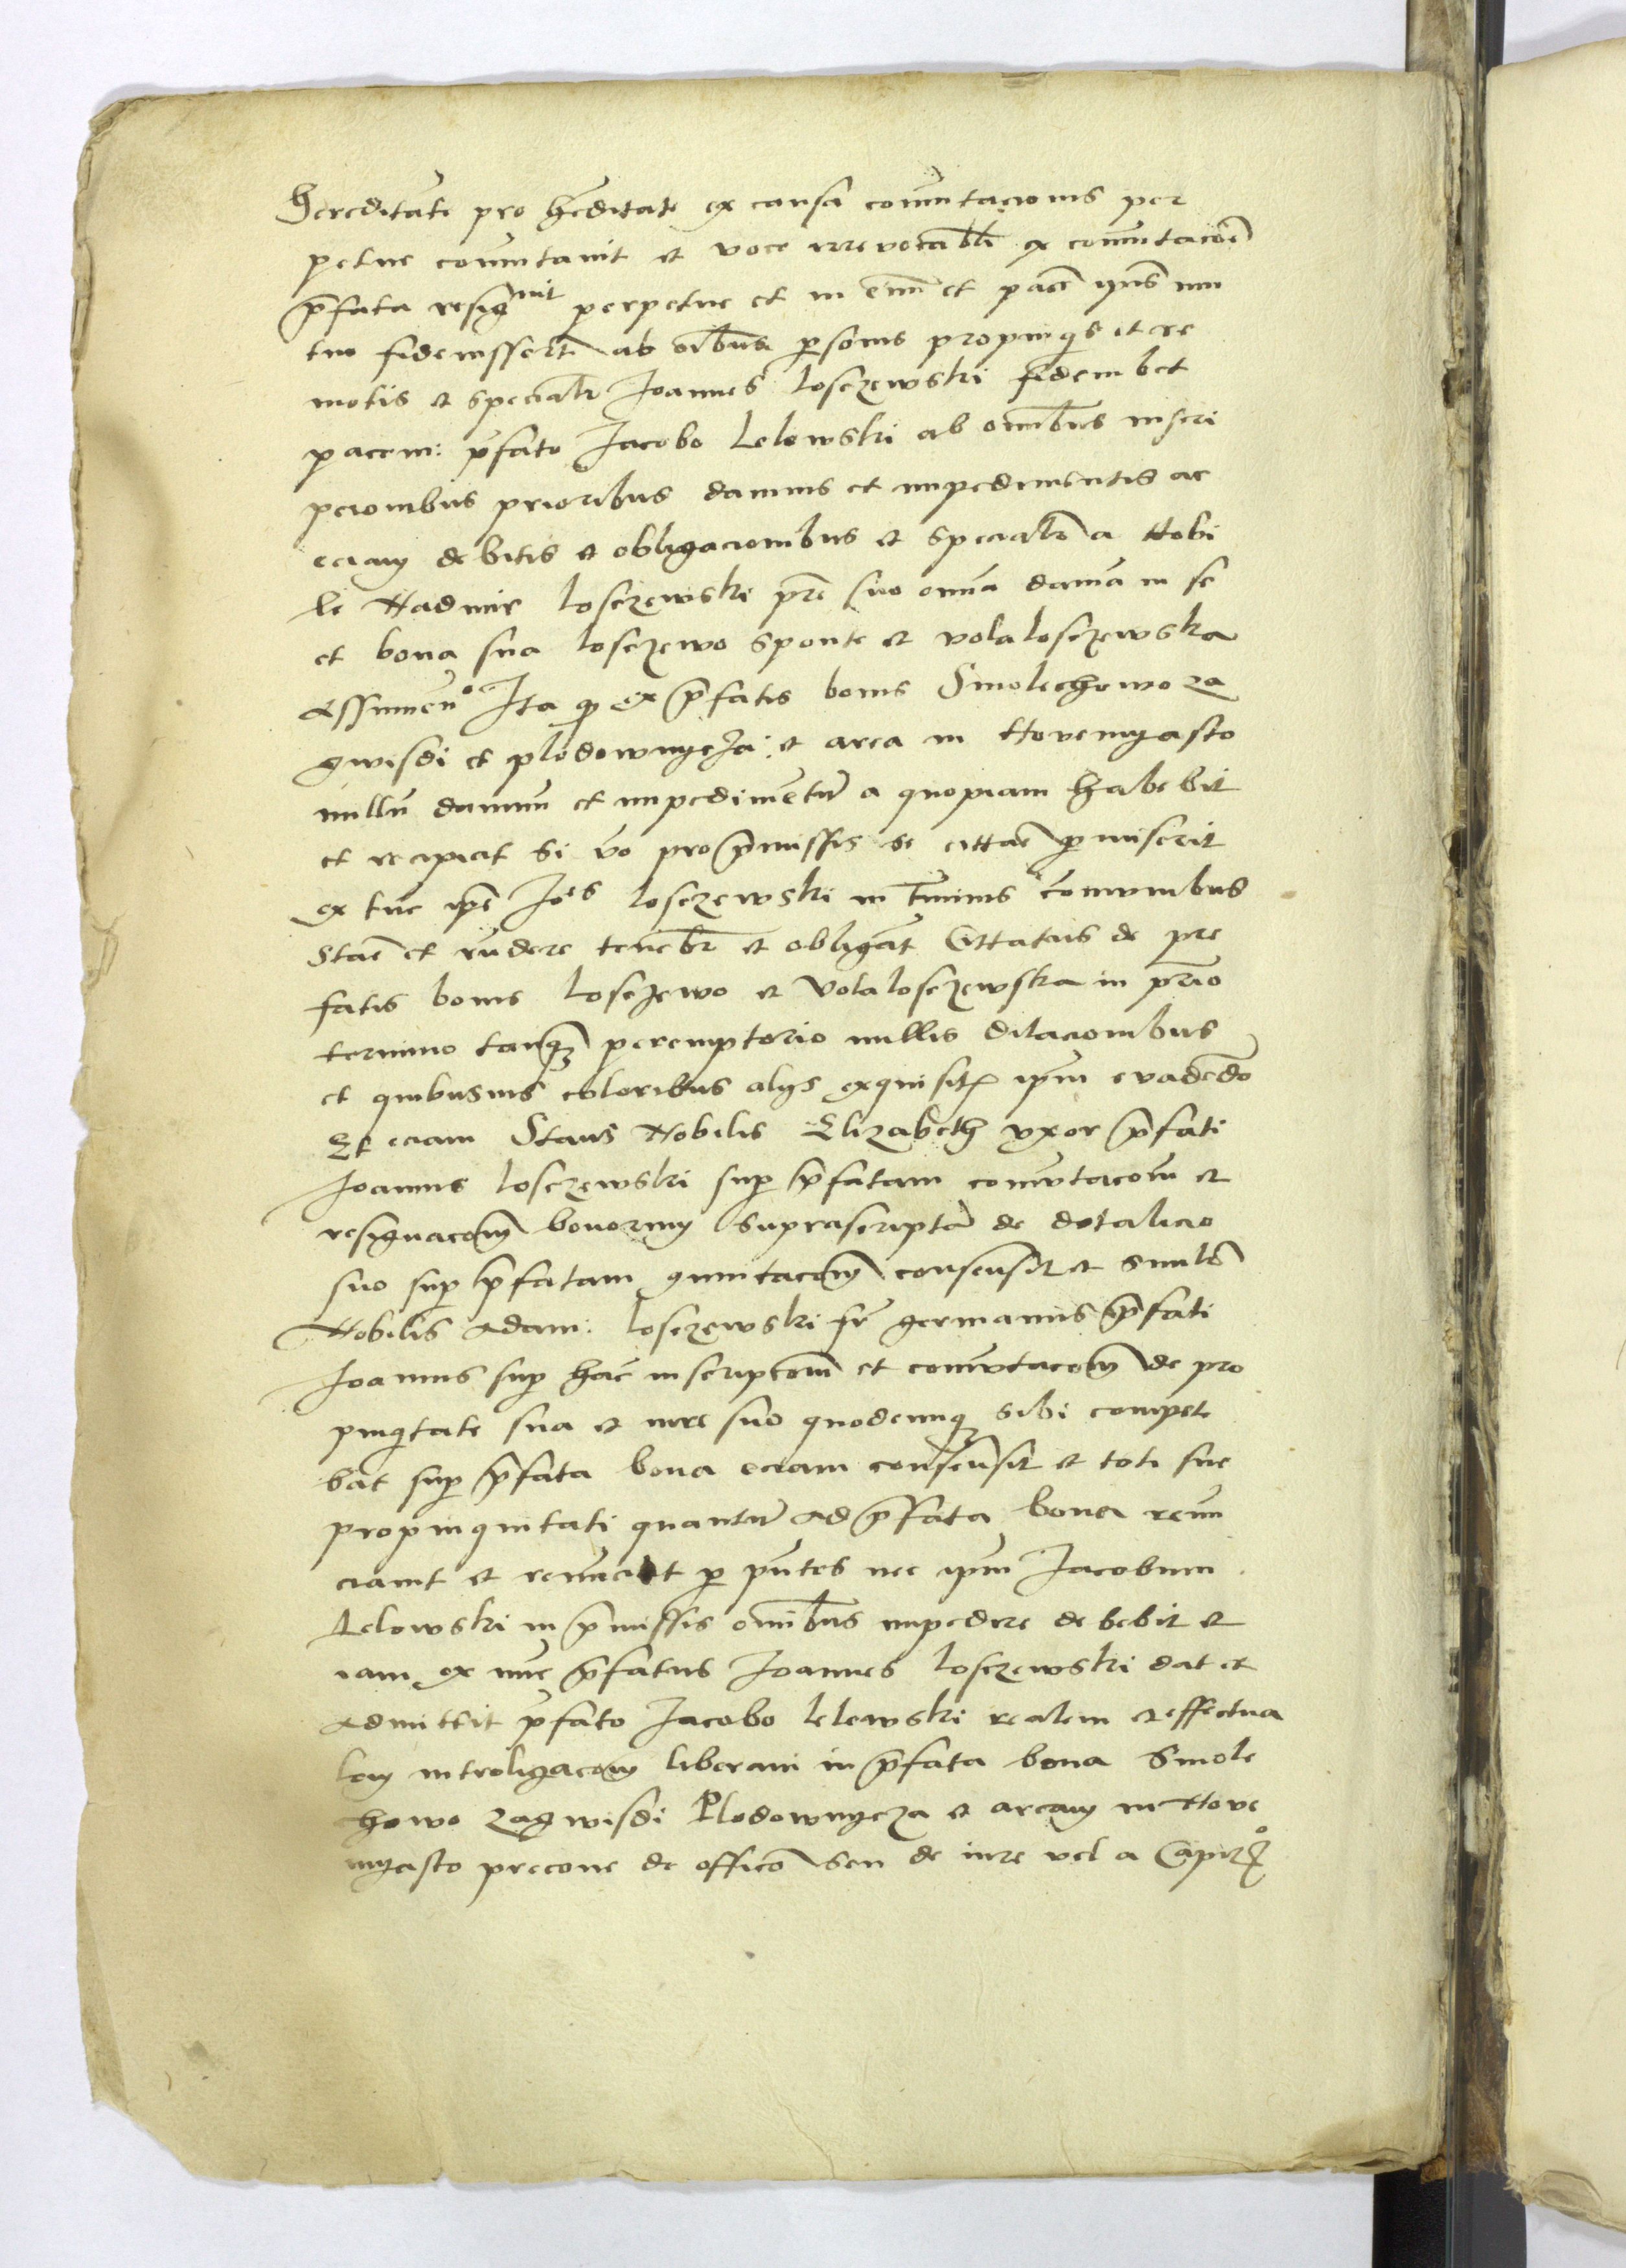 Hereditate pro hēditate ex causa comutacionis per
petue comutavit et voce irrevocabli ex comutacōe
p̄fata resigvit perpetue et in eūn et pacē ipius mu
tuo fideiussert ab oībus p̄sonis propinqis et re
motis et specialr Joannes losczewski fidemket
pacem: p̄fato Jacobo Lelowski ab omībus inscri
pcionibus prioribus damnis et impedimentis ac
eciam debitis et obligacionibus et specialr a Nobi
le Nadmir losczewski pr̄e suo omīa damna in se
et bona sua losczewo sponte et vola losczewska
assumen° Ita qp ex p̄fatis bonis Smolechowo za
gwisdi et plodownycza: et area in Novemyasto
nullū damnum et impedimētū a quopiam habebit
et recipiet Si v̄o pro p̄missis se cittarē p̄miserit
ex tūc ip̄e Joēs losczewski in t̄minis cōmunibus
Starē et r̄ndere tenebr et obligāt Cittatus de pre
fatis bonis losczewo et Vola losczewska in prīo
termino tanq̄ȝ peremptorio nullis dilacionibus
et quibusuis coloribus alys exquisitꝭ ip̄m evadēdo
Et eciam Stans Nobilis Elizabeth vxor p̄fati
Joannis losczewski sup̄ p̄fatam comutacōm et
resignacōm bonorum suprascriptār de dotalicio
suo sup̄ p̄fatam gmutacōm consensit et Similr
Nobilis Adam: losczewski fr̄ germanus p̄fati
Joannis sup̄ hāc inscripcōm et comutacōm de pro
pinqitate sua et iure suo quodcunqȝ sibi compete
bat sup̄ p̄fata bona eciam consensit et toti sue
propinquitati quantū ad p̄fata bona renu
ciavit et renūciat p̄ pn̄tes nec ip̄m Jacobum
Lelowski in p̄missis omībus impedire debebit et
iam ex nūc p̄fatus Joannes losczewski dat et
admittit p̄fato Jacobo lelewski realem et effectua
lem introligacōm liberam in p̄fata bona Smole
howo Zagwisdi Plodownycza et aream in Nove
myasto precone de officō seu de iure vel a Capit°